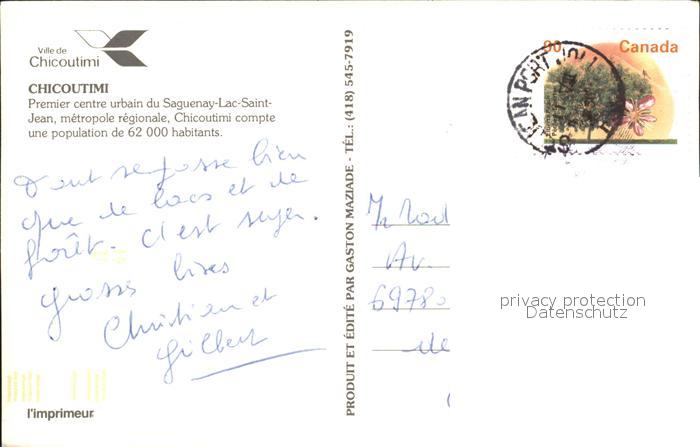 Ville de
Chicoutimi
CHICOUTIMI
Premier centre urbain du Saguenay-Lac-Saint-
Jean, métropole régionale, Chicoutimi compte
une population de 62 000 habitants.
Tout se passe bien
que de lacs et de
forêt. C'est super.
Grosses bises
Christian et
Gilbert
l'imprimeur
PRODUIT ET ÉDITÉ PAR GASTON MAZIADE - TÉL.: (418) 545-7919
90 Canada
JEAN PORT JOLI
Av.
69780
de
privacy protection
Datenschutz